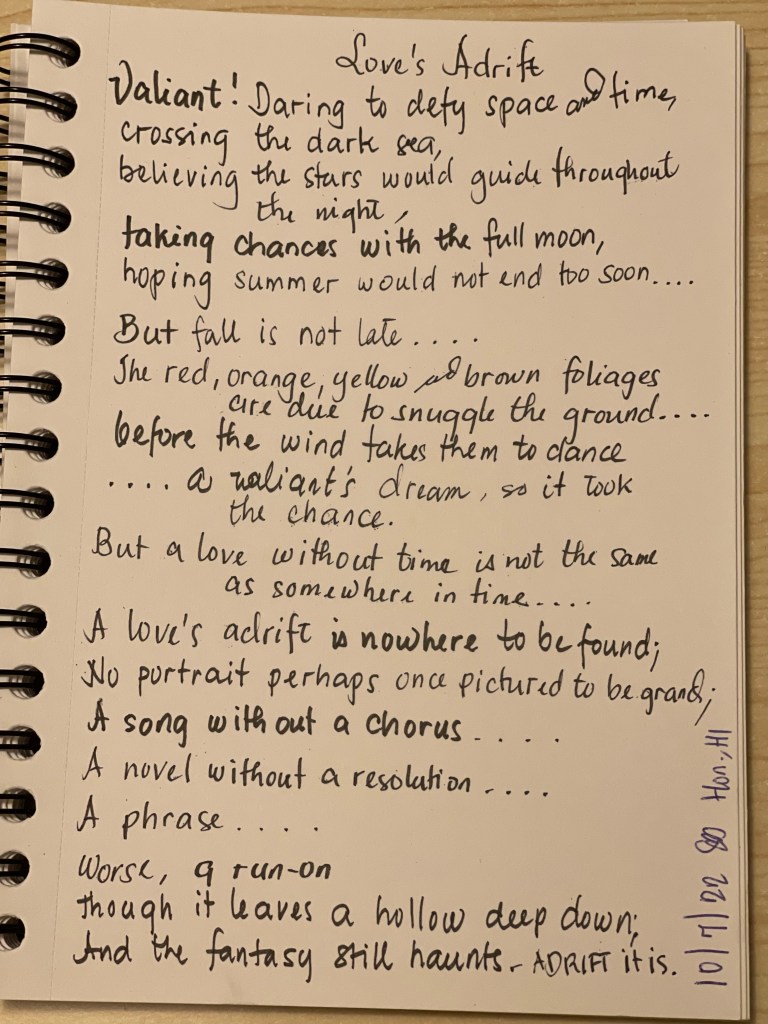 Love's Adrift
Valiant! Daring to defy space and time,
crossing the dark sea,
believing the stars would guide throughout
the night,
taking chances with the full moon,
hoping summer would not end too soon....
But fall is not late....
The red, orange, yellow and brown foliages
are due to snuggle the ground....
before the wind takes them to dance
.... a valiant's dream, so it took
the chance.
But a love without time is not the same
as somewhere in time....
A love's adrift is nowhere to be found;
No portrait perhaps once pictured to be grand;
A song without a chorus....
A novel without a resolution....
A phrase....
Worse, a run-on
though it leaves a hollow deep down;
And the fantasy still haunts - ADRIFT it is.
10/4/22